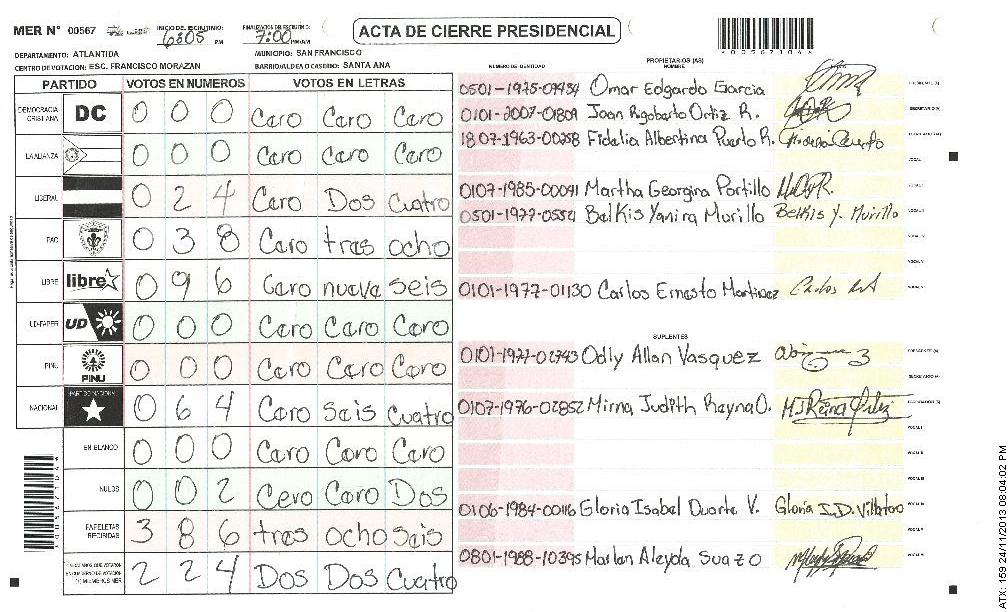 MER N° 00567 INICIO DE ESCRUTINIO: 6:05 PM FINALIZACION DE ESCRUTINIO: 7:00 PM/AM
ACTA DE CIERRE PRESIDENCIAL
*00567104*
DEPARTAMENTO: ATLANTIDA MUNICIPIO: SAN FRANCISCO
CENTRO DE VOTACION: ESC. FRANCISCO MORAZAN BARRIO/ALDEA O CASERIO: SANTA ANA
PARTIDO VOTOS EN NUMEROS VOTOS EN LETRAS
DEMOCRACIA CRISTIANA DC 0 0 0 Cero Cero Cero
LA ALIANZA 0 0 0 Cero Cero Cero
LIBERAL 0 2 4 Cero Dos Cuatro
PAC 0 3 8 Cero tres ocho
LIBRE libre 0 9 6 Cero nueve seis
UD-FAPER UD 0 0 0 Cero Cero Cero
PINU PINU 0 0 0 Cero Cero Cero
NACIONAL PARTIDO NACIONAL 0 6 4 Cero Seis Cuatro
EN BLANCO 0 0 0 Cero Cero Cero
NULOS 0 0 2 Cero Cero Dos
PAPELETAS RECIBIDAS 3 8 6 tres ocho seis
2 2 4 Dos Dos Cuatro
NUMERO DE IDENTIDAD PROPIETARIOS (AS) NOMBRE
Omar Edgardo Garcia PRESIDENTE (A)
0101-2007-01809 Joan Rigoberto Ortiz R. SECRETARIO (A)
1807-1963-00258 Fidelia Albertina Puerto R.
VOCAL I
0107-1985-00041 Martha Georgina Portillo
Belkis Yanira Murillo Belkis Y. Murillo
0101-1977-01130 Carlos Ernesto Martinez
SUPLENTES
0101-1977-02743 Odly Allan Vasquez PRESIDENTE (A)
SECRETARIO (A)
0107-1976-02852 Mirna Judith Reyna O.
0106-1984-00116 Gloria Isabel Duarte V. Gloria I.D.
0801-1988-10395 Marlen Aleyda Suazo
ATX: 159 24/11/2013 08:04:02 PM